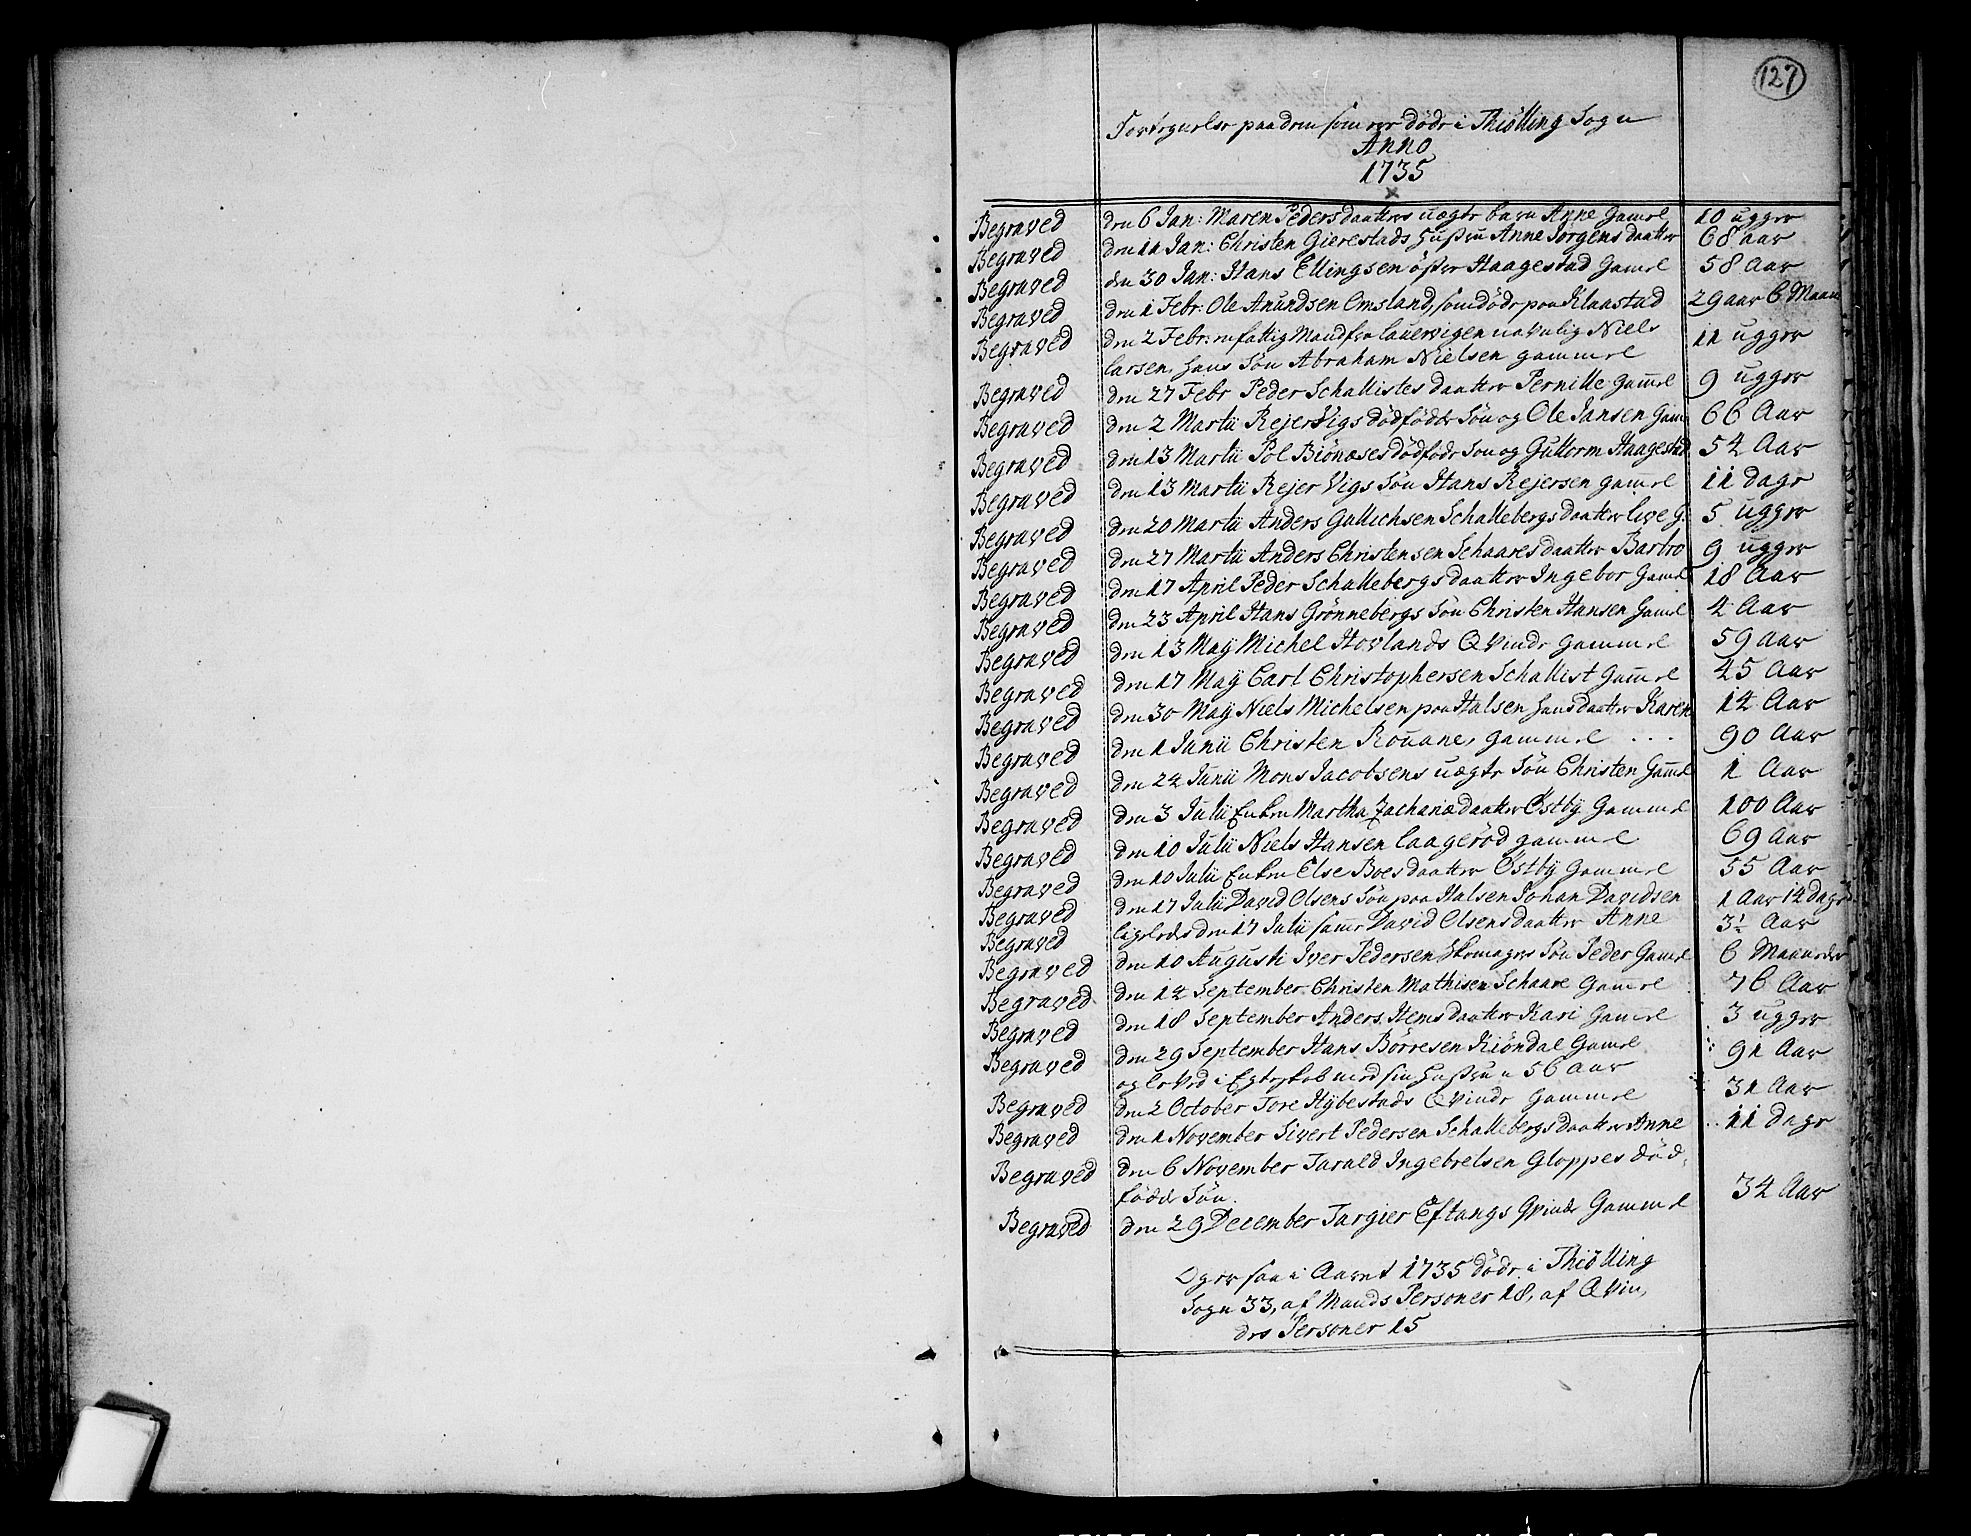 127
Fortegnelse paa dem som ere døde i Thiølling Sogn
Anno
1735
Begraved den 6 Jan: Maren Pedersdaatters uægte barn Anne Gamel 10 ugger
Begraved den 11 Jan: Christen Gierestads Hustru Anne Jørgens daatter 68 aar
Begraved den 30 Jan: Hans Ellingsen øster Haagestad Gamel 58 Aar
Begraved den 1 Febr: Ole Anundsen Omsland, som døde paa Klaastad 29 aar 6 Maan
Begraved den 2 Febr: en fattig Mand fra Laurvigen navnlig Niels
Larsen, hans Søn Abraham Nielsen gammel 11 ugger
Begraved den 27 Febr Peder Schallistes daatter Pernille Gamel 9 ugger
Begraved den 2 Martii Rejer Vigs dødfødde Søn og Ole Jansen Gam 66 Aar
Begraved den 13 Martii Pol Biønæses dødfødde Søn og Guttorm Haagestad 54 Aar
Begraved den 13 Martii Rejer Vigs Søn Hans Rejersen gamel 11 dage
Begraved den 20 Martii Anders Gullichsen Schallebergs daatter Live G: 5 ugger
Begraved den 27 Martii Anders Christensen Schaares daatter Barbro 9 ugger
Begraved den 17 April Peder Schallebergs daatter Ingebor Gamel 18 Aar
Begraved den 23 April Hans Grønnebergs Søn Christen Hansen Gamel 4 Aar
Begraved den 13 Maÿ Michel Hovlands Qvinde Gammel 59 aar
Begraved den 17 Maÿ Carl Christophersen Schallist Gamel 45 Aar
Begraved den 30 Maÿ Niels Michelsen paa Halsen hans daatter Karen 14 Aar
Begraved den 1 Junii Christen Rouane, gammel 90 Aar
Begraved den 24 Junii Mons Jacobsens uægte Søn Christen Gamel 1 Aar
Begraved den 3 Julii Enken Martha Zachariædaatter Østbÿ Gammel 100 Aar
Begraved den 10 Julii Niels Hansen Laagerød gammel 69 Aar
Begraved den 10 Julii Enken Else Boesdaatter Østbÿ Gammel 55 Aar
Begraved den 17 Julii David Olsens Søn paa Halsen Johan Davidsen 1 Aar 14 Dage
Begraved ligeledes den 17 Julii samme David Olsens daatter Anne 3½ Aar
Begraved den 10 Augusti Iver Pedersen Skomagers Søn Peder Gamel 6 Maaneder
Begraved den 14 September Christen Mathisen Schaare Gamel 76 Aar
Begraved den 18 September Anders Hems daatter Kari Gamel 3 ugger
Begraved den 29 September Hans Børresen Kiøndal Gamel 91 Aar
og leved i Egteskab med sin Hustru 56 Aar
Begraved den 2 October Tore Hÿbestads Qvinde Gammel 31 Aar
Begraved den 1 November Sivert Pedersen Schallebergs daatter Anne 11 dage
Begraved den 6 November Tarald Ingebretsen Gloppes død-
fødde Søn.
Begraved den 29 December Targier Eftangs Qvinde Gammel 34 Aar
Og er saa i Aaret 1735 døde i Thiølling
Sogn 33, af Mands Personer 18, af Qvin,
des Personer 15